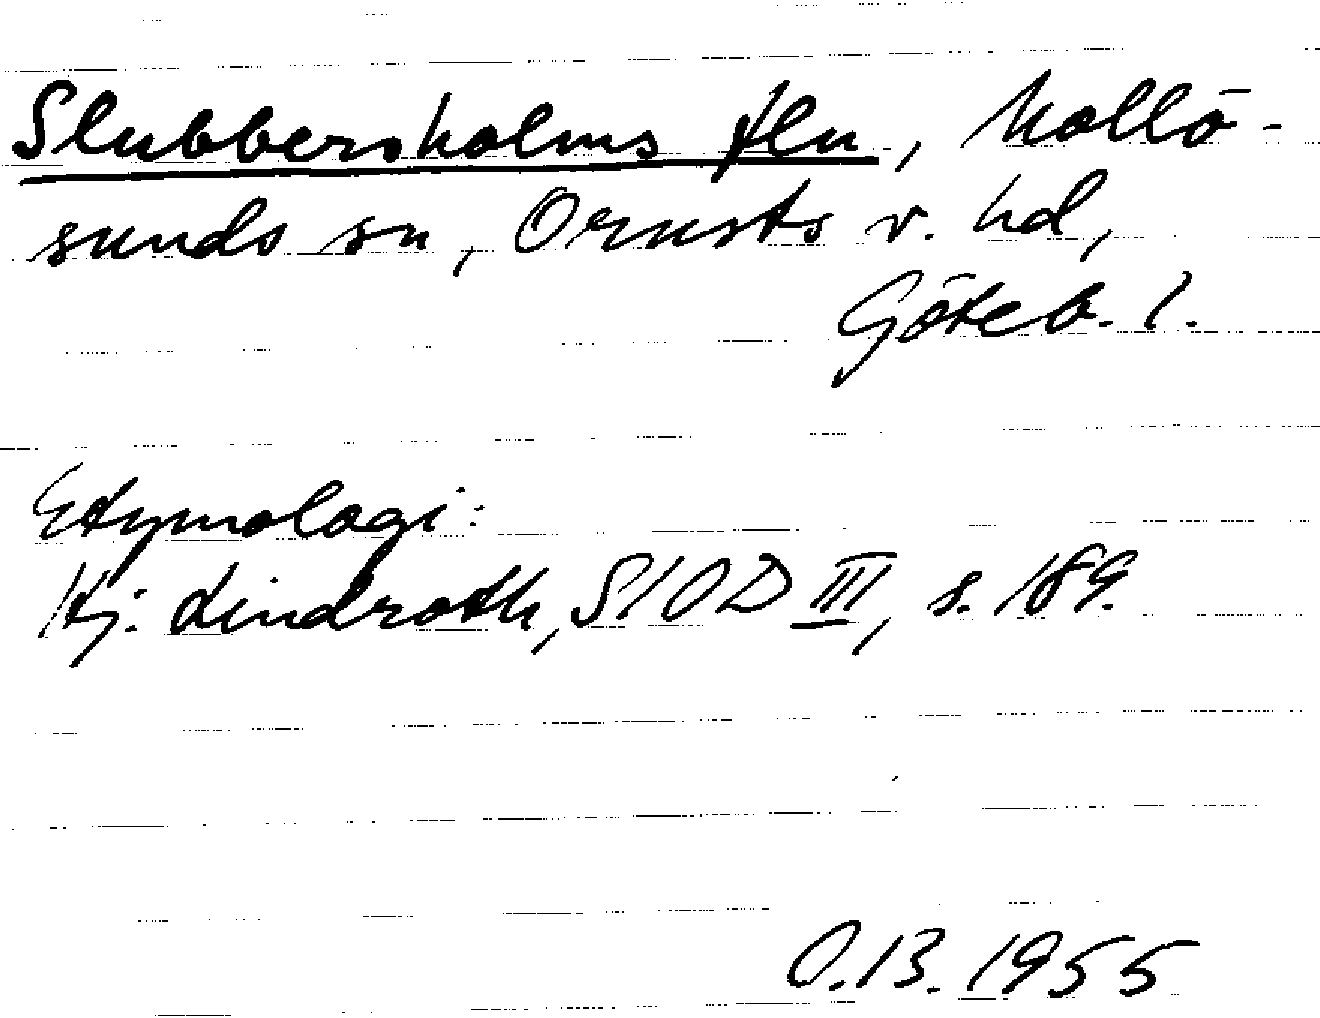 Slubbersholms flu, Mollö-
sunds sn, Orusts v. hd,
Göteb. l.
Etymologi:
Hj. Lindroth, SIOD III, s. 189.
O.B. 1955